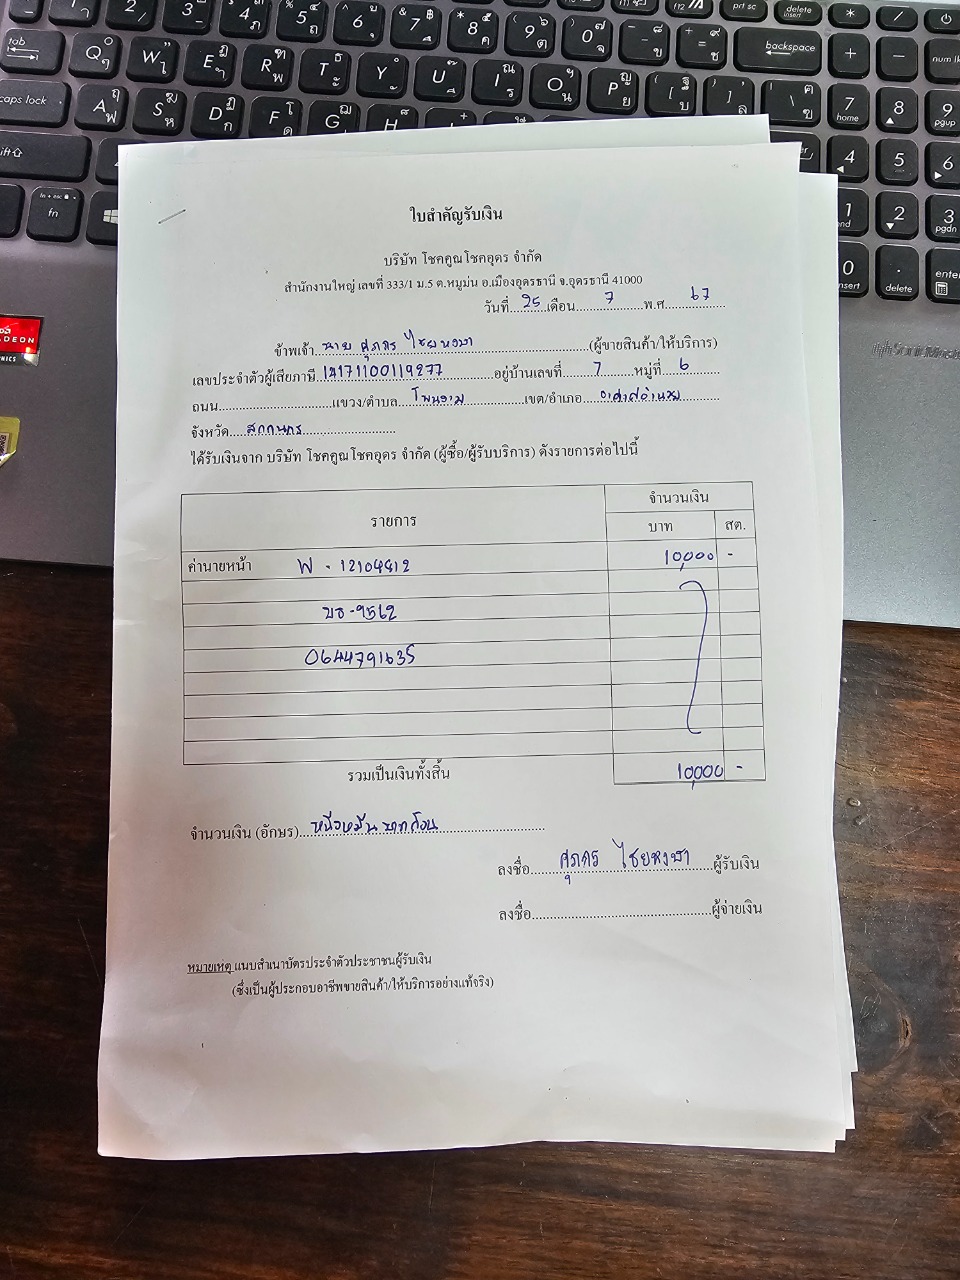 ใบสำคัญรับเงิน
บริษัท โชคคูณโชคอุดร จำกัด
สำนักงานใหญ่ เลขที่ 333/1 ม.5 ต.หมูม่น อ.เมืองอุดรธานี จ.อุดรธานี 41000
วันที่ 25 เดือน 7 พ.ศ. 67
ข้าพเจ้า นาย ศุภกร ไชยหงษา (ผู้ขายสินค้า/ให้บริการ)
เลขประจำตัวผู้เสียภาษี 14171100119277 อยู่บ้านเลขที่ 7 หมู่ที่ 6
ถนน แขวง/ตำบล โพนงาม เขต/อำเภอ อากาศอำนวย
จังหวัด สกลนคร
ได้รับเงินจาก บริษัท โชคคูณโชคอุดร จำกัด (ผู้ซื้อ/ผู้รับบริการ) ดังรายการต่อไปนี้
รายการ จำนวนเงิน
บาท สต.
ค่านายหน้า W - 12104812 10,000 -
ขธ-9562
0644791635
รวมเป็นเงินทั้งสิ้น 10,000 -
จำนวนเงิน (อักษร) หนึ่งหมื่นบาทถ้วน
ลงชื่อ ศุภกร ไชยหงษา ผู้รับเงิน
ลงชื่อ ผู้จ่ายเงิน
หมายเหตุ แนบสำเนาบัตรประจำตัวประชาชนผู้รับเงิน
(ซึ่งเป็นผู้ประกอบอาชีพขายสินค้า/ให้บริการอย่างแท้จริง)